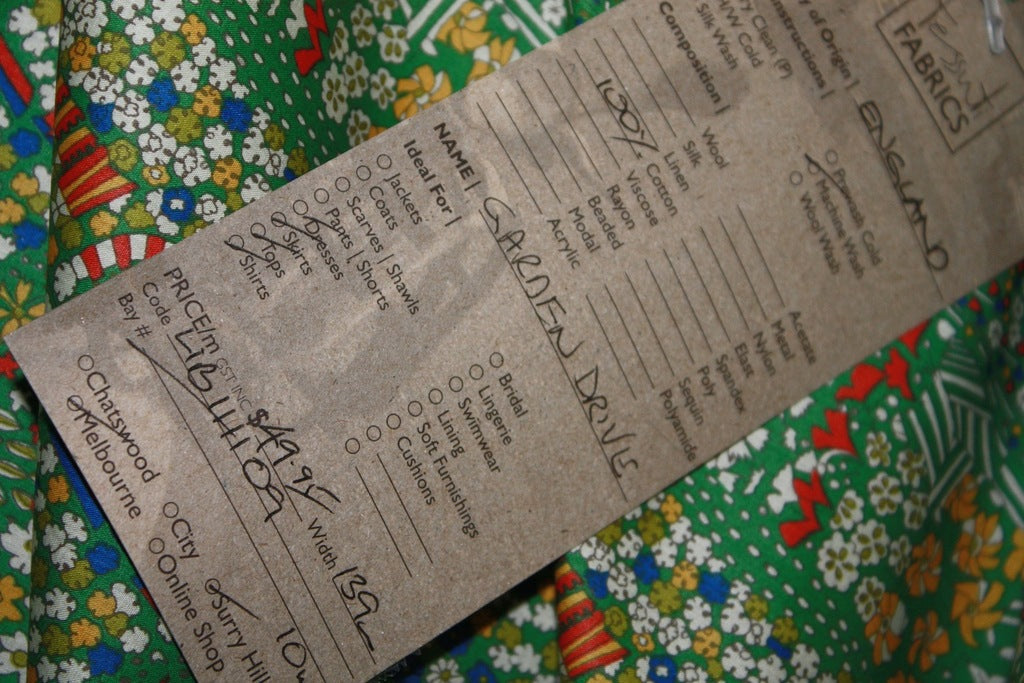 Tessuti
FABRICS
y of Origin | ENGLAND
nstructions |
ry Clean (P)
H/W Cold
Silk Wash
Machine Wash
Wool Wash
Composition |
Wool
Silk
Linen
100% Cotton
Viscose
Rayon
Beaded
Modal
Acrylic
Acetate
Metal
Nylon
Elast
Spandex
Poly
Sequin
Polyamide
NAME | GARDEN DRIVE
Ideal For |
Jackets
Coats
Scarves | Shawls
Pants | Shorts
Dresses
Skirts
Tops
Shirts
Bridal
Lingerie
Swimwear
Lining
Soft Furnishings
Cushions
PRICE/m GST INC $49.95 Width 139
Code
Bay #
Chatswood
Melbourne
City
Surry Hill
Online Shop